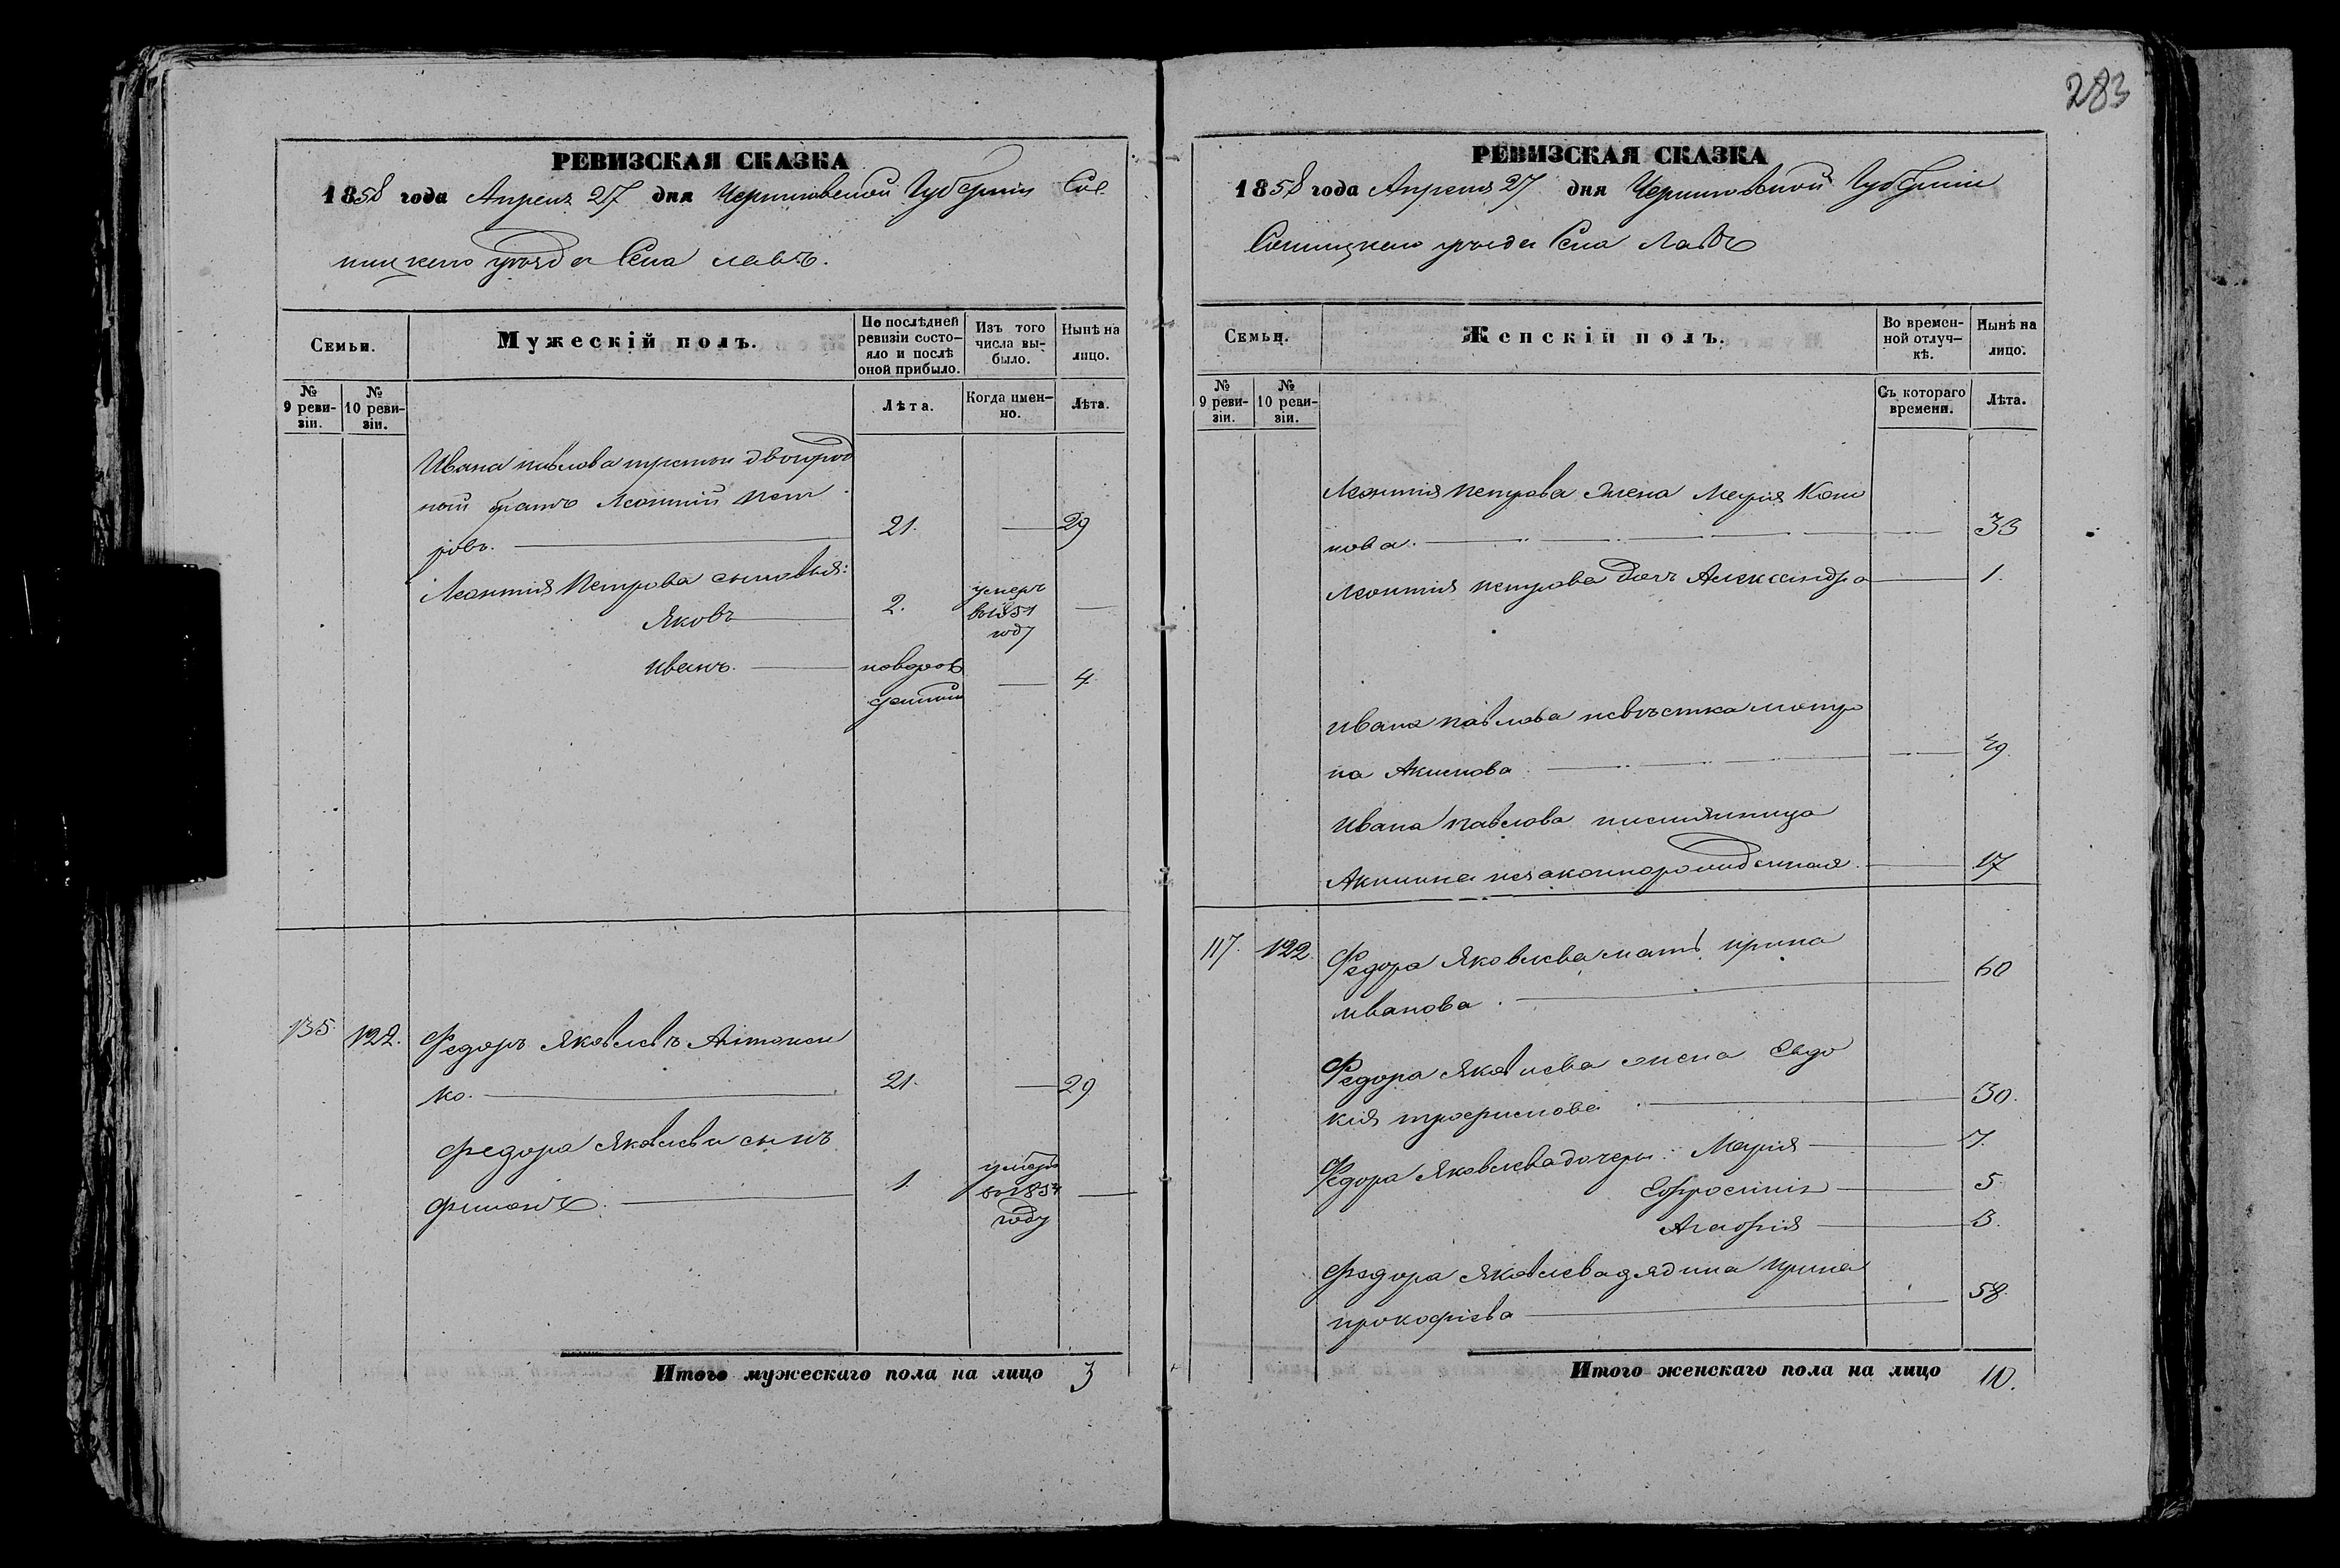 283
РЕВИЗСКАЯ СКАЗКА
1858 года Апреля 27 дня Черниговской Губернии Сос
ницкого уѣзда Села Лавъ.
Семьи.
Мужескій полъ.
По послѣдней ревизіи состояло и послѣ оной прибыло.
Изъ того числа выбыло.
Нынѣ на лицо.
№ 9 ревизіи.
№ 10 ревизіи.
Лѣта.
Когда именно.
Лѣта.
Ивана павлова третій двоюрод
ной братъ Леонтий Пет
ровъ. 21. 29
Леонтия Петрова сыновья:
Яковъ 2. умеръ в 1851 году
иванъ. новорожденный 4
135. 122. Федоръ Яковлевъ Антонен
ко. 21. 29
Федора Яковлева сынъ
филонъ. 1. умеръ в 1854 году
Итого мужескаго пола на лицо 3
РЕВИЗСКАЯ СКАЗКА
1858 года Апреля 27 дня Черниговской Губернии
Сосницкого уѣзда Села Лавъ
Семьи.
Женскій полъ.
Во временной отлучкѣ.
Нынѣ на лицо.
№ 9 ревизіи.
№ 10 ревизіи.
Съ котораго времени.
Лѣта.
Леонтия петрова жена Мария Коно
нова. 33
Леонтия петрова дочь Александра 1.
ивана павлова невѣстка мотро
на Акимова 49
ивана павлова племянница
Акилина незаконнорожденная. 17
117. 122. Федора Яковлева мать ирина
иванова. 60
Федора Яковлева жена Евдо
кия трофимова 30.
Федора Яковлева дочери: Мария 7.
Ефросиния 5
Агафия 3.
Федора Яковлева дядина Ирина
прокофиева 58.
Итого женскаго пола на лицо 10.